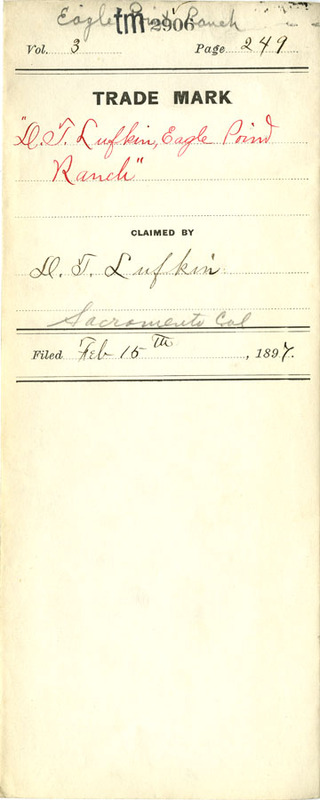 Eagle Point Ranch
tm 2906
Vol. 3 Page 249
TRADE MARK
"D. T. Lufkin, Eagle Point
Ranch"
CLAIMED BY
D. T. Lufkin
Sacramento Cal
Filed Feb 15th, 1897.